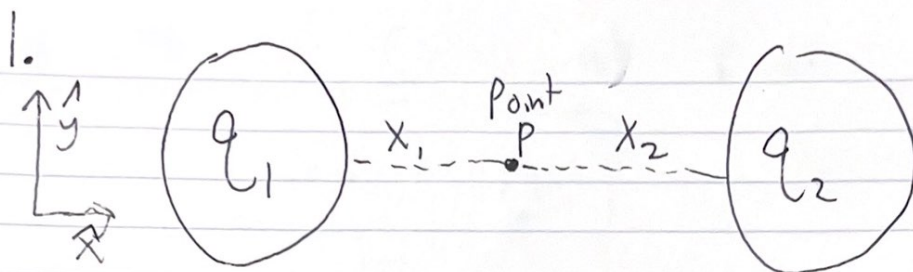 1.
ŷ
x̂
q₁
X₁
Point
P
X₂
q₂